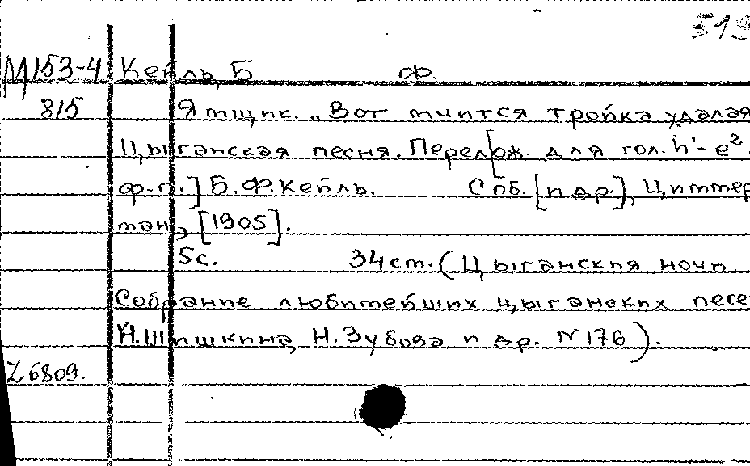 513
М 153-4 Кейль, Б ф.
815 Ямщик. „Вот мчится тройка удалая
Цыганская песня. Перелож. для гол. h'-e²
ф-п.] Б.Ф. Кейль. Спб. [и др.], Циммер
ман, [1905].
5с. 34 ст. (Цыганския ночи
Собрание любимейших цыганских песе
Н. Шишкина, Н. Зубова и др. N 176).
Z 6809.